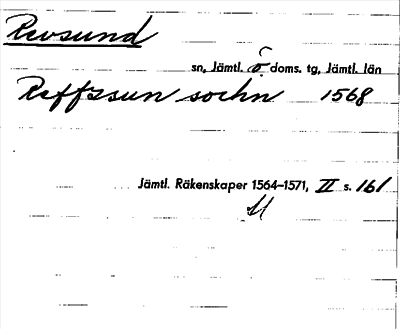 Revsund
sn, Jämtl. ö. doms. tg, Jämtl. län
Reffssun sochn 1568
Jämtl. Räkenskaper 1564–1571, II s. 161